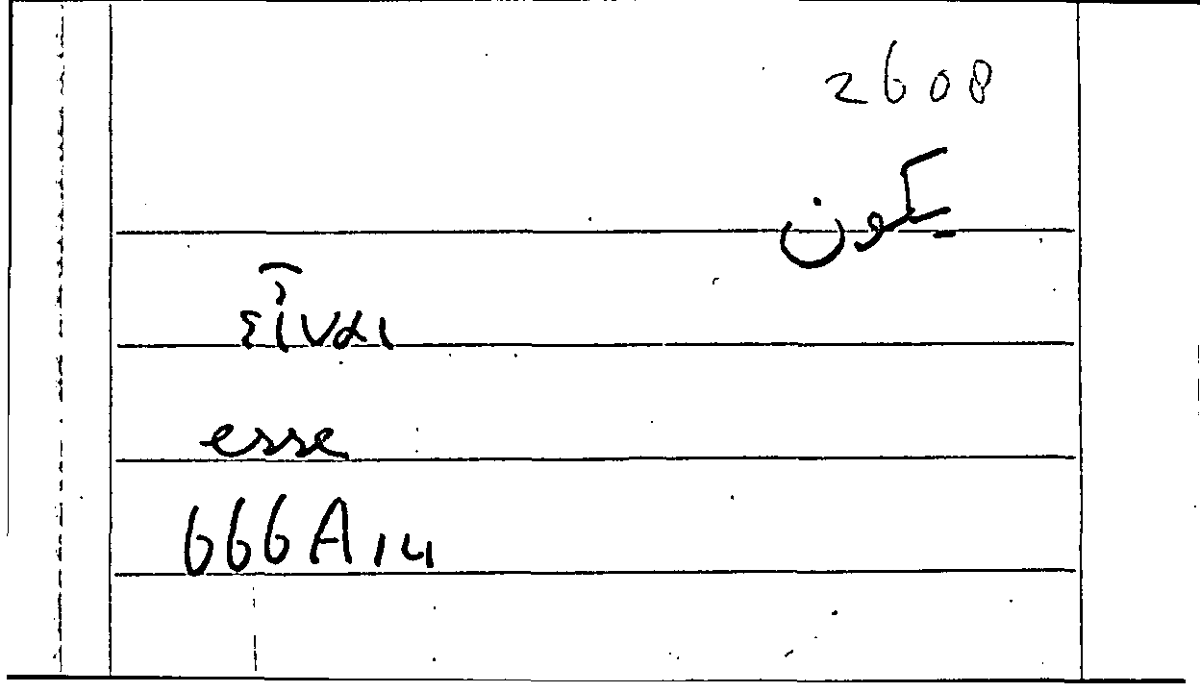 2608
يكون
εἶναι
esse
666A14